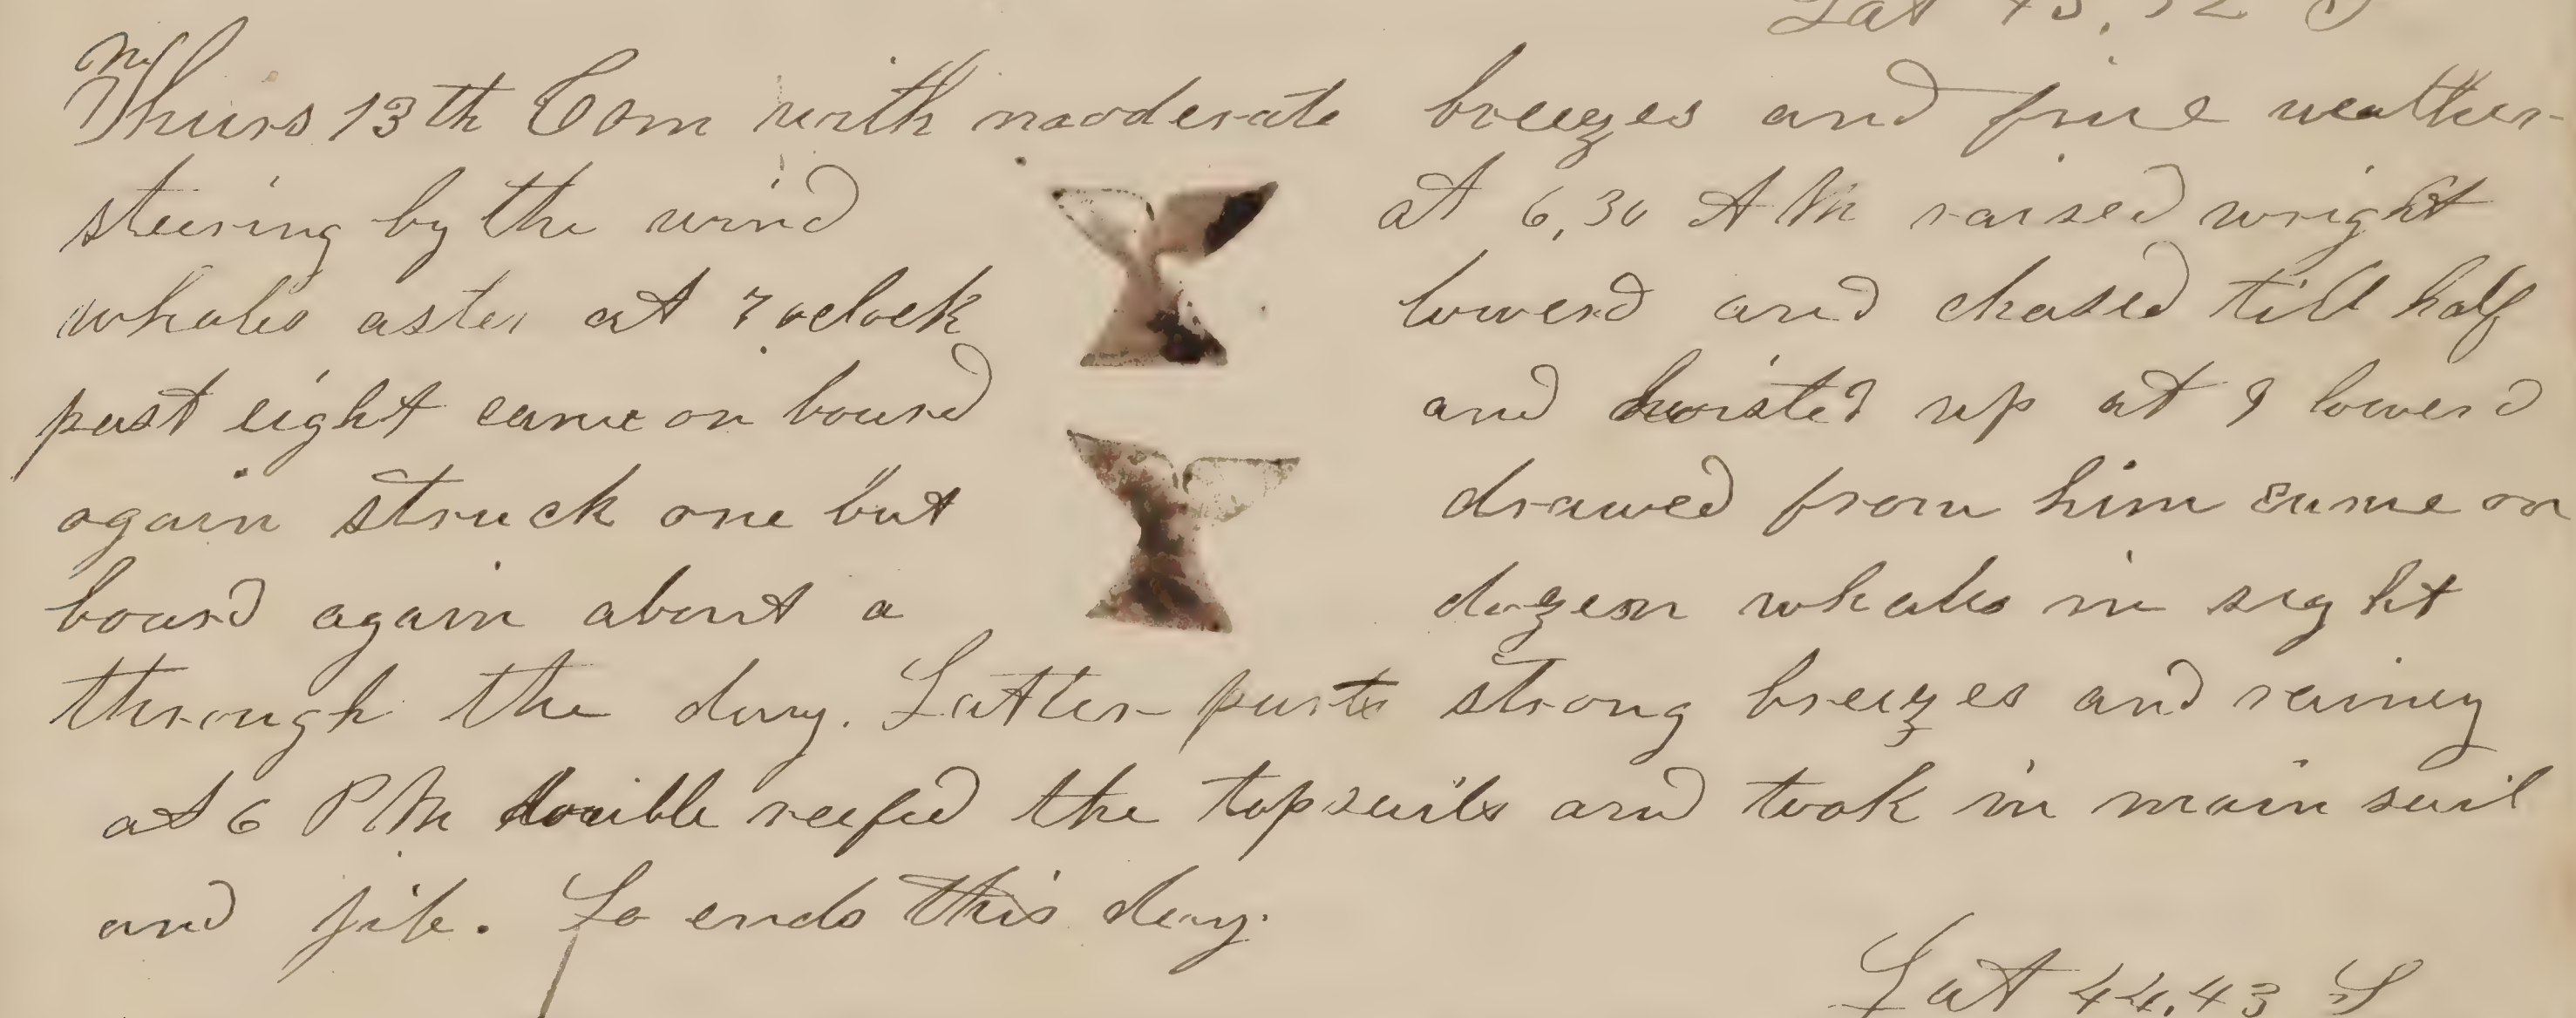 Lat 43,52 S
Thurs 13th Com with moderate breezes and fine weather
steering by the wind at 6,30 AM raised wright
whales aster at 7 oclock lowerd and chased till half
past eight came on board and hoisted up at 9 lowerd
again struck one but drawed from him came on
board again about a dozen whales in sight
through the day. Latter part strong breezes and rainy
at 6 PM double reefed the topsails and took in main sail
and jib. So ends this day.
Lat 44,43 S